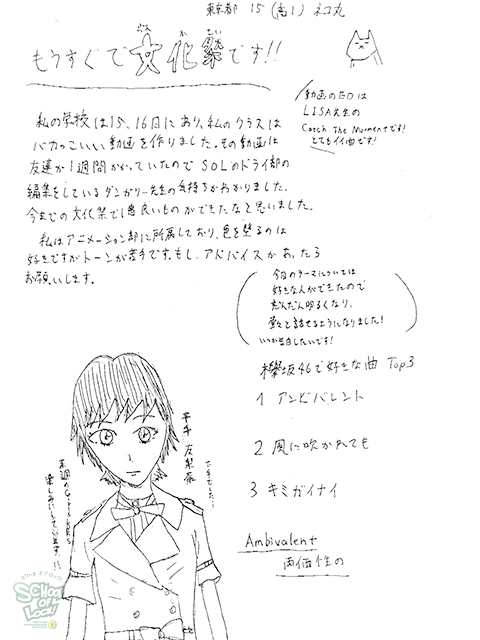 東京都 15 (高1) ネコ丸
もうすぐで文化祭です!!
ぶん か さい
動画のEDは
LISA先生の
Catch The Momentです!
とてもイイ曲です!
私の学校は15、16日にあり、私のクラスは
バカっこいい動画を作りました。その動画は
友達が1週間かかっていたのでSOLのドライ部の
編集をしているダンガリー先生の気持ちがわかりました。
今までの文化祭で1番良いものができたなと思いました。
私はアニメーション部に所属しており、色を塗るのは
好きですがトーンが苦手です。もし、アドバイスがあったら
お願いします。
今日のテーマについては
好きな人ができたので
だんだん明るくなり、
堂々と話せるようになりました!
いつか告白したいです!
欅坂46で好きな曲 Top3
1 アンビバレント
2 風に吹かれても
3 キミガイナイ
Ambivalent
両価性の
平手 友梨奈
下手でした!
来週の
楽しみにしています!!
スクールオブロック!
SCHOOL OF LOCK!